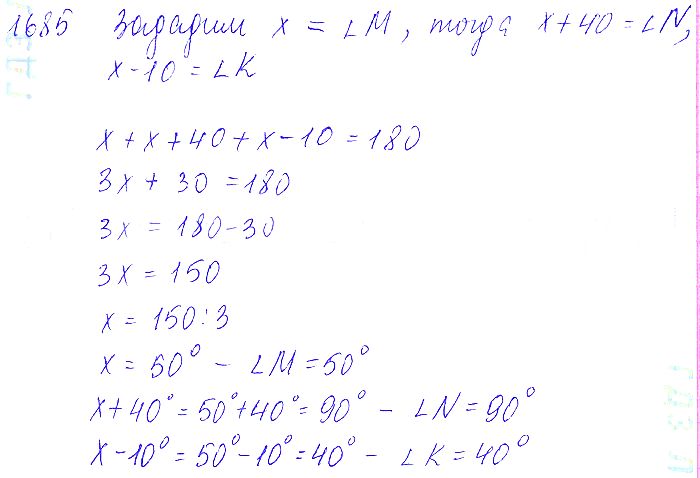 1685 Зададим x = ∠M, тогда x+40 = ∠N,
x-10 = ∠K
x + x + 40 + x - 10 = 180
3x + 30 = 180
3x = 180-30
3x = 150
x = 150:3
x = 50° - ∠M = 50°
x+40° = 50°+40° = 90° - ∠N = 90°
x-10° = 50°-10° = 40° - ∠K = 40°